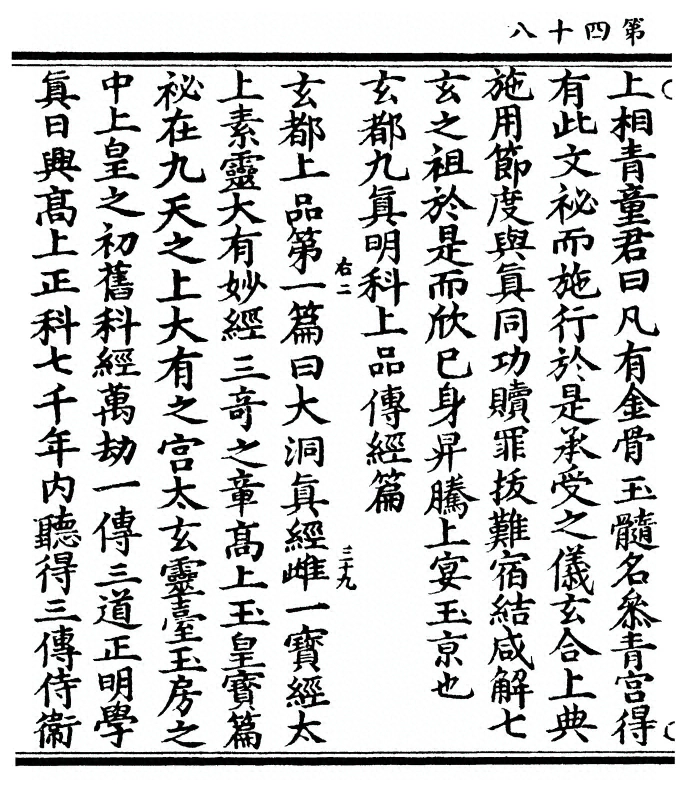 第四十八
上相青童君曰凡有金骨玉髓名叅青宮得
有此文祕而施行於是承受之儀玄合上典
施用節度與眞同功贖罪拔難宿結咸解七
玄之祖於是而欣已身昇騰上宴玉京也
玄都九眞明科上品傳經篇
右二
玄都上品第一篇曰大洞眞經雌一寳經太
三十九
上素靈大有妙經三竒之章髙上玉皇寳篇
祕在九天之上大有之宮太玄靈臺玉房之
中上皇之初舊科經萬劫一傳三道正明學
眞日興髙上正科七千年內聽得三傳侍衛